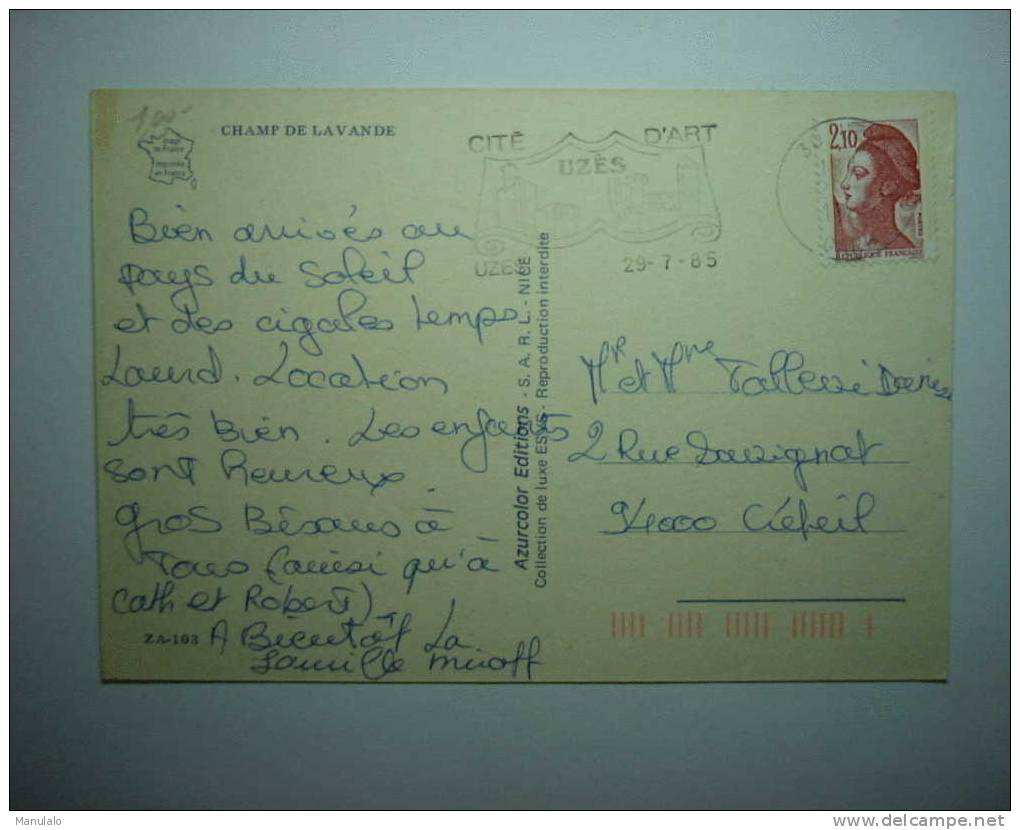 1,00
CHAMP DE LAVANDE
Image de France
Imprimée en France
Bien arrivés au
pays du Soleil
et des cigales temps
Lourd. Location
très bien. Les enfants
sont heureux.
gros Bisous à
Tous (ainsi qu'à
Cath et Robert)
ZA-103 A Bientôt La
famille
Azurcolor Editions - S. A. R. L. - NICE
Collection de luxe - Reproduction interdite
CITÉ D'ART
UZÈS
UZES 29-7-85
30
2,10
POSTES
REPUBLIQUE FRANÇAISE
Mr et Mme
2 Rue
94000 Créteil
Manulalo
www.delcampe.net